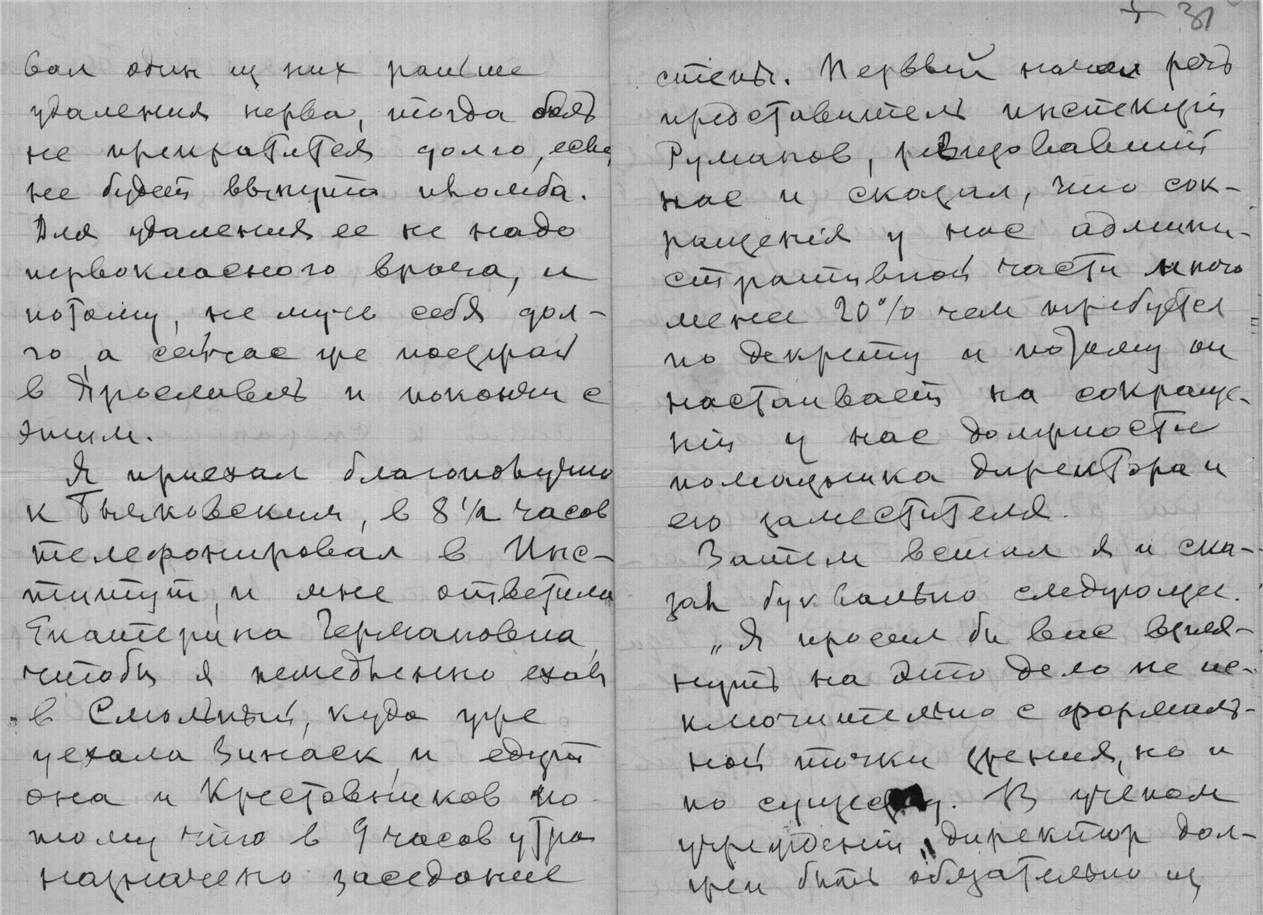 вал один из них раньше
удаления нерва, тогда боль
не прекратится долго, если
не будет вынута пломба.
Для удаления ее не надо
первокласного врача, и
потому, не мучь себя дол-
го, а сейчас же поезжай
в Ярославль и покончи с
этим.
Я приехал благополучно
к Быховским, в 8 1/2 часов
телефонировал в Инс-
титут, и мне ответила
Екатерина Германовна,
чтобы я немедленно ехал
в Смольный, куда уже
уехала и едут
она и Крестовников по-
тому что в 9 часов утра
назначено заседание
31
Первый начал речь
представитель инспекции
Руманов, ревизовавший
нас и сказал, что сок-
ращения у нас админи-
стративной части много
менее 20% чем требуется
по декрету и потому он
настаивает на сокраще-
нии у нас должности
помощника директора и
его заместителя.
Затем встал я и ска-
зал буквально следующее.
"Я просил бы вас взгля-
нуть на это дело не ис-
ключительно с формаль-
ной точки зрения, но и
по существу. В ученом
учреждении директор дол-
жен быть обязательно из